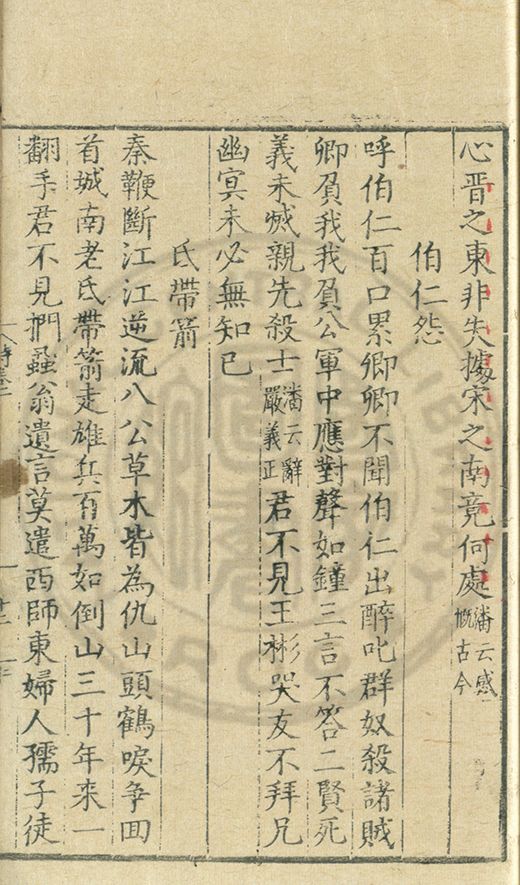 心晋之東非失據宋之南竟何處潘云感慨古今
伯仁怨
呼伯仁百口累卿卿不聞伯仁出醉叱群奴殺諸賊
卿負我我負公軍中應對聲如鐘三言不答二賢死
義未滅親先殺士潘云辭嚴義正君不見王彬哭友不拜兄
幽冥未必無知已
氐帶箭
秦鞭斷江江逆流八公草木皆為仇山頭鶴唳爭回
首城南老氐帶箭走雄兵百萬如倒山三十年来一
翻手君不見捫蝨翁遺言莫遣西師東婦人孺子徒